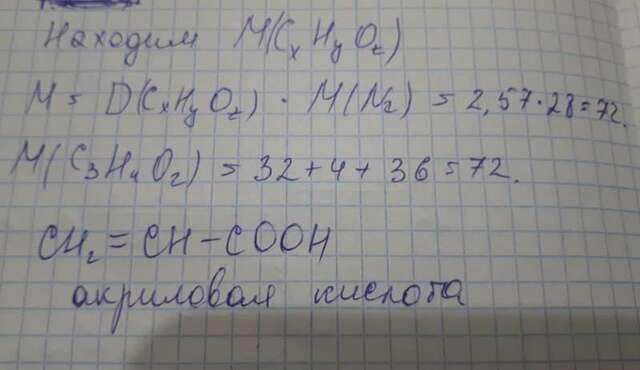 Находим M(CxHyOz)
M = D(CxHyOz) · M(N2) = 2,57·28=72.
M(C3H4O2) = 32+4+36=72.
CH2=CH-COOH
акриловая кислота